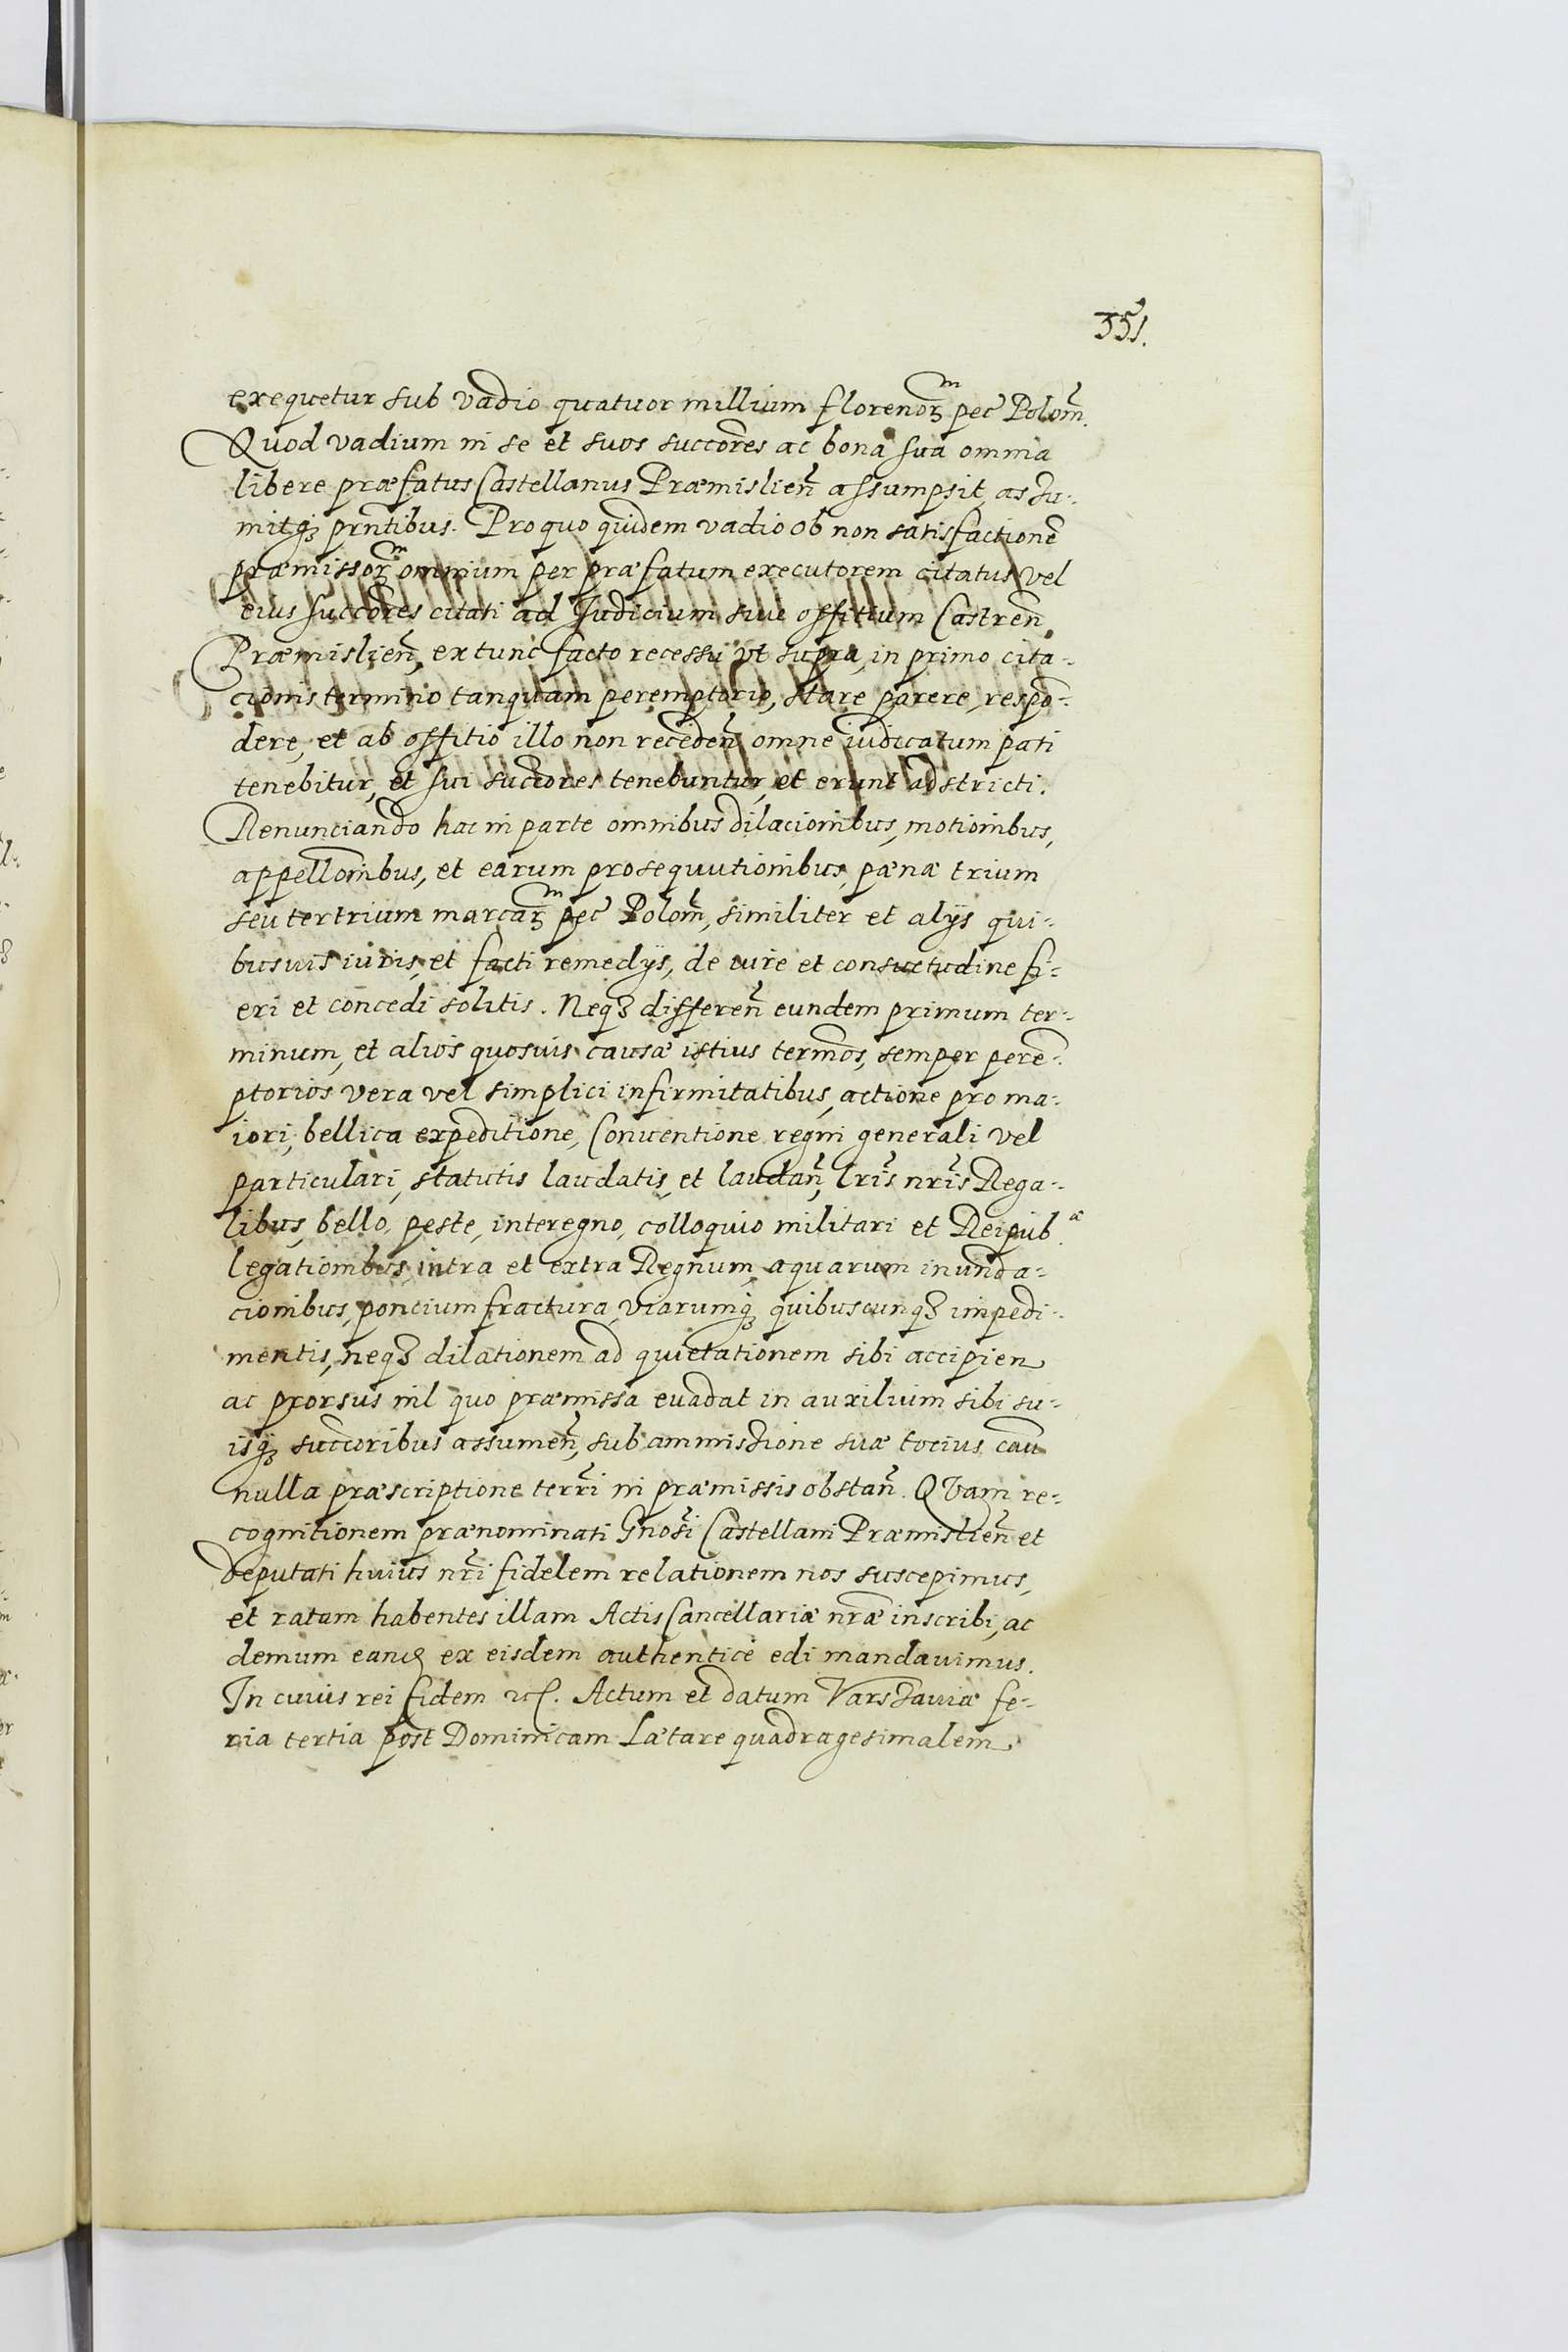 351.
exequetur sub vadio quatuor millium florenoꝝᵐ pec̃ Polom̃.
Quod vadium in se et suos succōres ac bona sua omnia
libere præfatus Castellanus Præmislien̄ assumpsit, assu-
mitqꝫ prn̄tibus. Pro quo quidem vadio ob non satisfactionē
præmissoꝝᵐ omnium per præfatum executorem citatus vel
eius succōres citati ad Judicium siue offitium Castren̄
Præmislien̄, ex tunc facto recessu vt supra, in primo cita-
cionis termino tanquam peremptorio, stare parere, respō-
dere, et ab offitio illo non receden̄ omne iudicatum pati
tenebitur, et sui succōres tenebuntur, et erunt adstricti.
Renunciando hac in parte omnibus dilacionibus, motionibus,
appellōnibus, et earum prosequutionibus, pænæ trium
seu ter trium marcaꝝᵐ pec̃ Polom̃, similiter et alijs qui-
busuis iuris, et facti remedijs, de iure et consuetudine fi-
eri et concedi solitis. Neqꝫ differen̄ eundem primum ter-
minum, et alios quosuis causæ istius termōs, semper perē-
ptorios vera vel simplici infirmitatibus, actione pro ma-
iori, bellica expeditione, Conuentione regni generali vel
particulari, statutis laudatis, et laudan̄, lr̃is nr̃is Rega-
libus, bello, peste, interegno, colloquio militari et Reipub.æ
legationibus intra et extra Regnum, aquarum inunda-
cionibus, poncium fractura, viarumqꝫ quibuscunqꝫ impedi-
mentis, neqꝫ dilationem ad quietationem sibi accipien
ac prorsus nil quo præmissa euadat in auxilium sibi su-
isqꝫ succoribus assumen̄, sub ammissione suæ tocius cau
nulla præscriptione terr̃i in præmissis obstan̄. QVam re-
cognitionem prænominati Gnosi Castellani Præmislien̄ et
deputati huius nr̃i fidelem relationem nos suscepimus,
et ratam habentes illam Actis Cancellariæ nr̃æ inscribi, ac
demum eanđ ex eisdem authentice edi mandauimus.
In cuius rei fidem etc. Actum et datum Varssauiæ fe-
ria tertia post Dominicam Lætare quadragesimalem